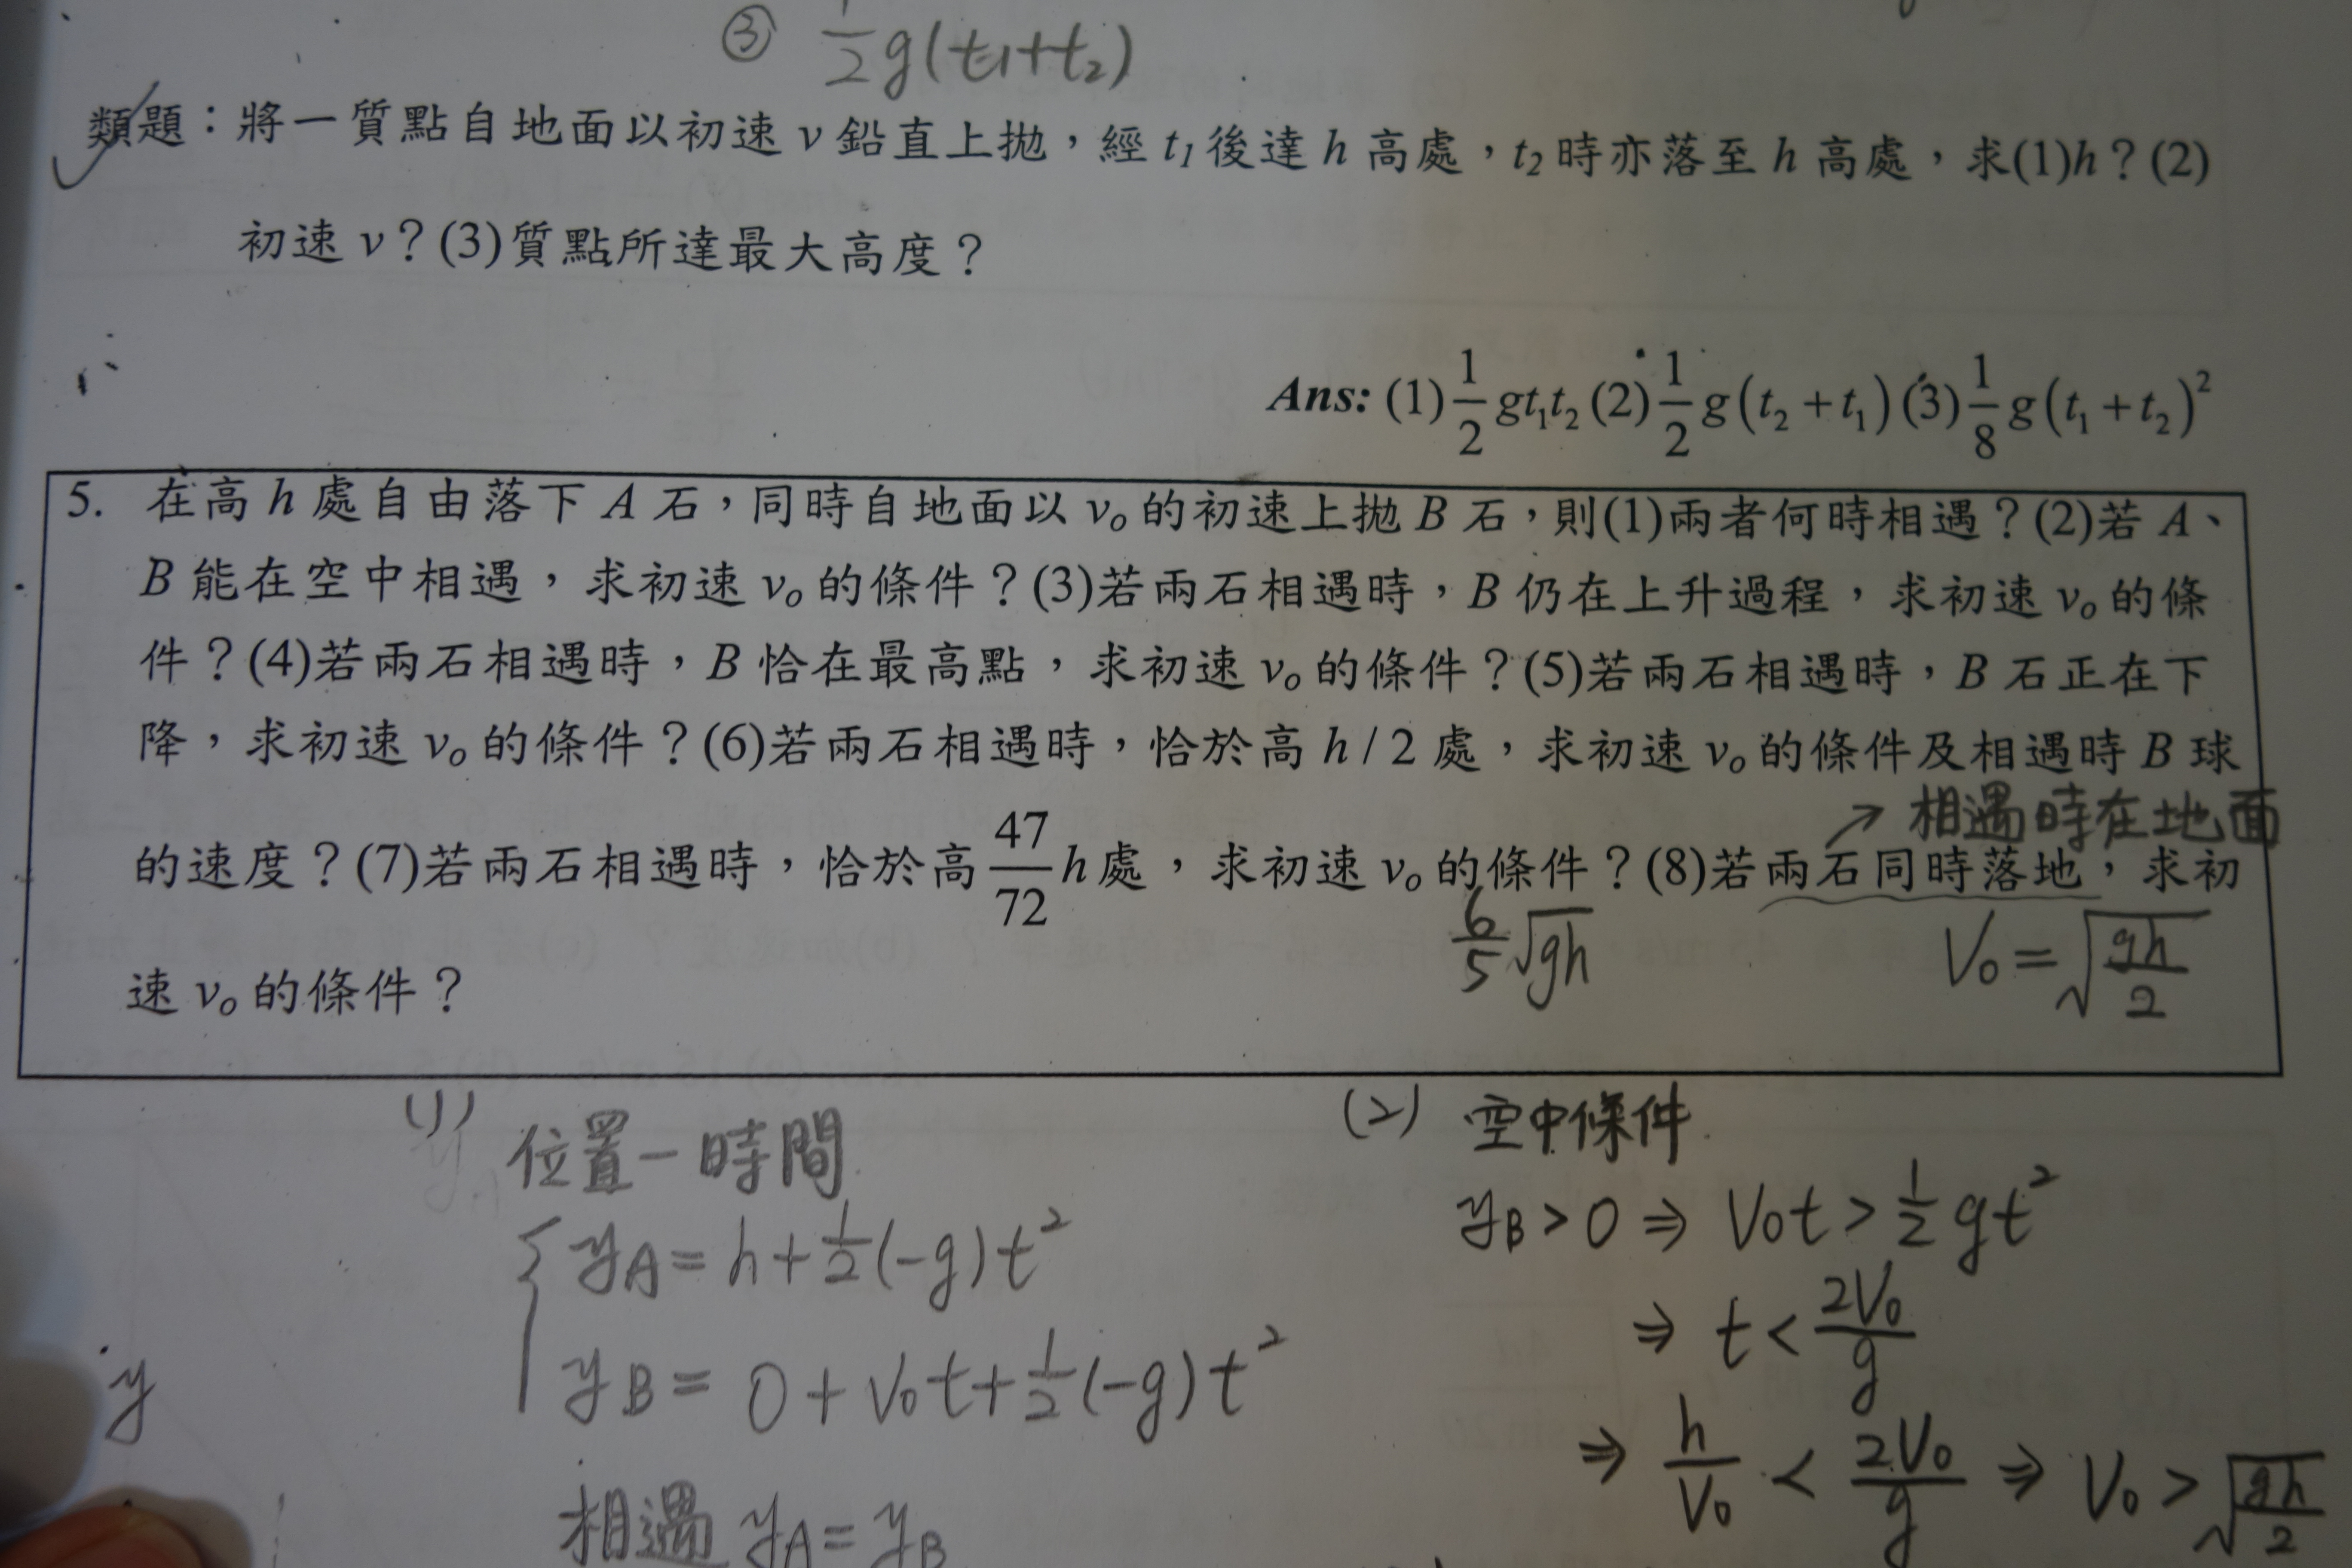 ③ 1/2 g(t₁+t₂)
類題：將一質點自地面以初速 v 鉛直上拋，經 t₁ 後達 h 高處，t₂ 時亦落至 h 高處，求(1)h？(2)
初速 v？(3)質點所達最大高度？
Ans: (1) 1/2 gt₁t₂ (2) 1/2 g(t₂+t₁) (3) 1/8 g(t₁+t₂)²
5. 在高 h 處自由落下 A 石，同時自地面以 v₀ 的初速上拋 B 石，則(1)兩者何時相遇？(2)若 A、
B 能在空中相遇，求初速 v₀ 的條件？(3)若兩石相遇時，B 仍在上升過程，求初速 v₀ 的條
件？(4)若兩石相遇時，B 恰在最高點，求初速 v₀ 的條件？(5)若兩石相遇時，B 石正在下
降，求初速 v₀ 的條件？(6)若兩石相遇時，恰於高 h/2 處，求初速 v₀ 的條件及相遇時 B 球
→ 相遇時在地面
的速度？(7)若兩石相遇時，恰於高 47/72 h 處，求初速 v₀ 的條件？(8)若兩石同時落地，求初
6/5 √gh
V₀ = √(gh/2)
速 v₀ 的條件？
(1) 位置－時間
yA = h + 1/2(-g)t²
yB = 0 + V₀t + 1/2(-g)t²
相遇 yA = yB
(2) 空中條件
yB > 0 ⇒ V₀t > 1/2 gt²
⇒ t < 2V₀/g
⇒ h/V₀ < 2V₀/g ⇒ V₀ > √(gh/2)
y